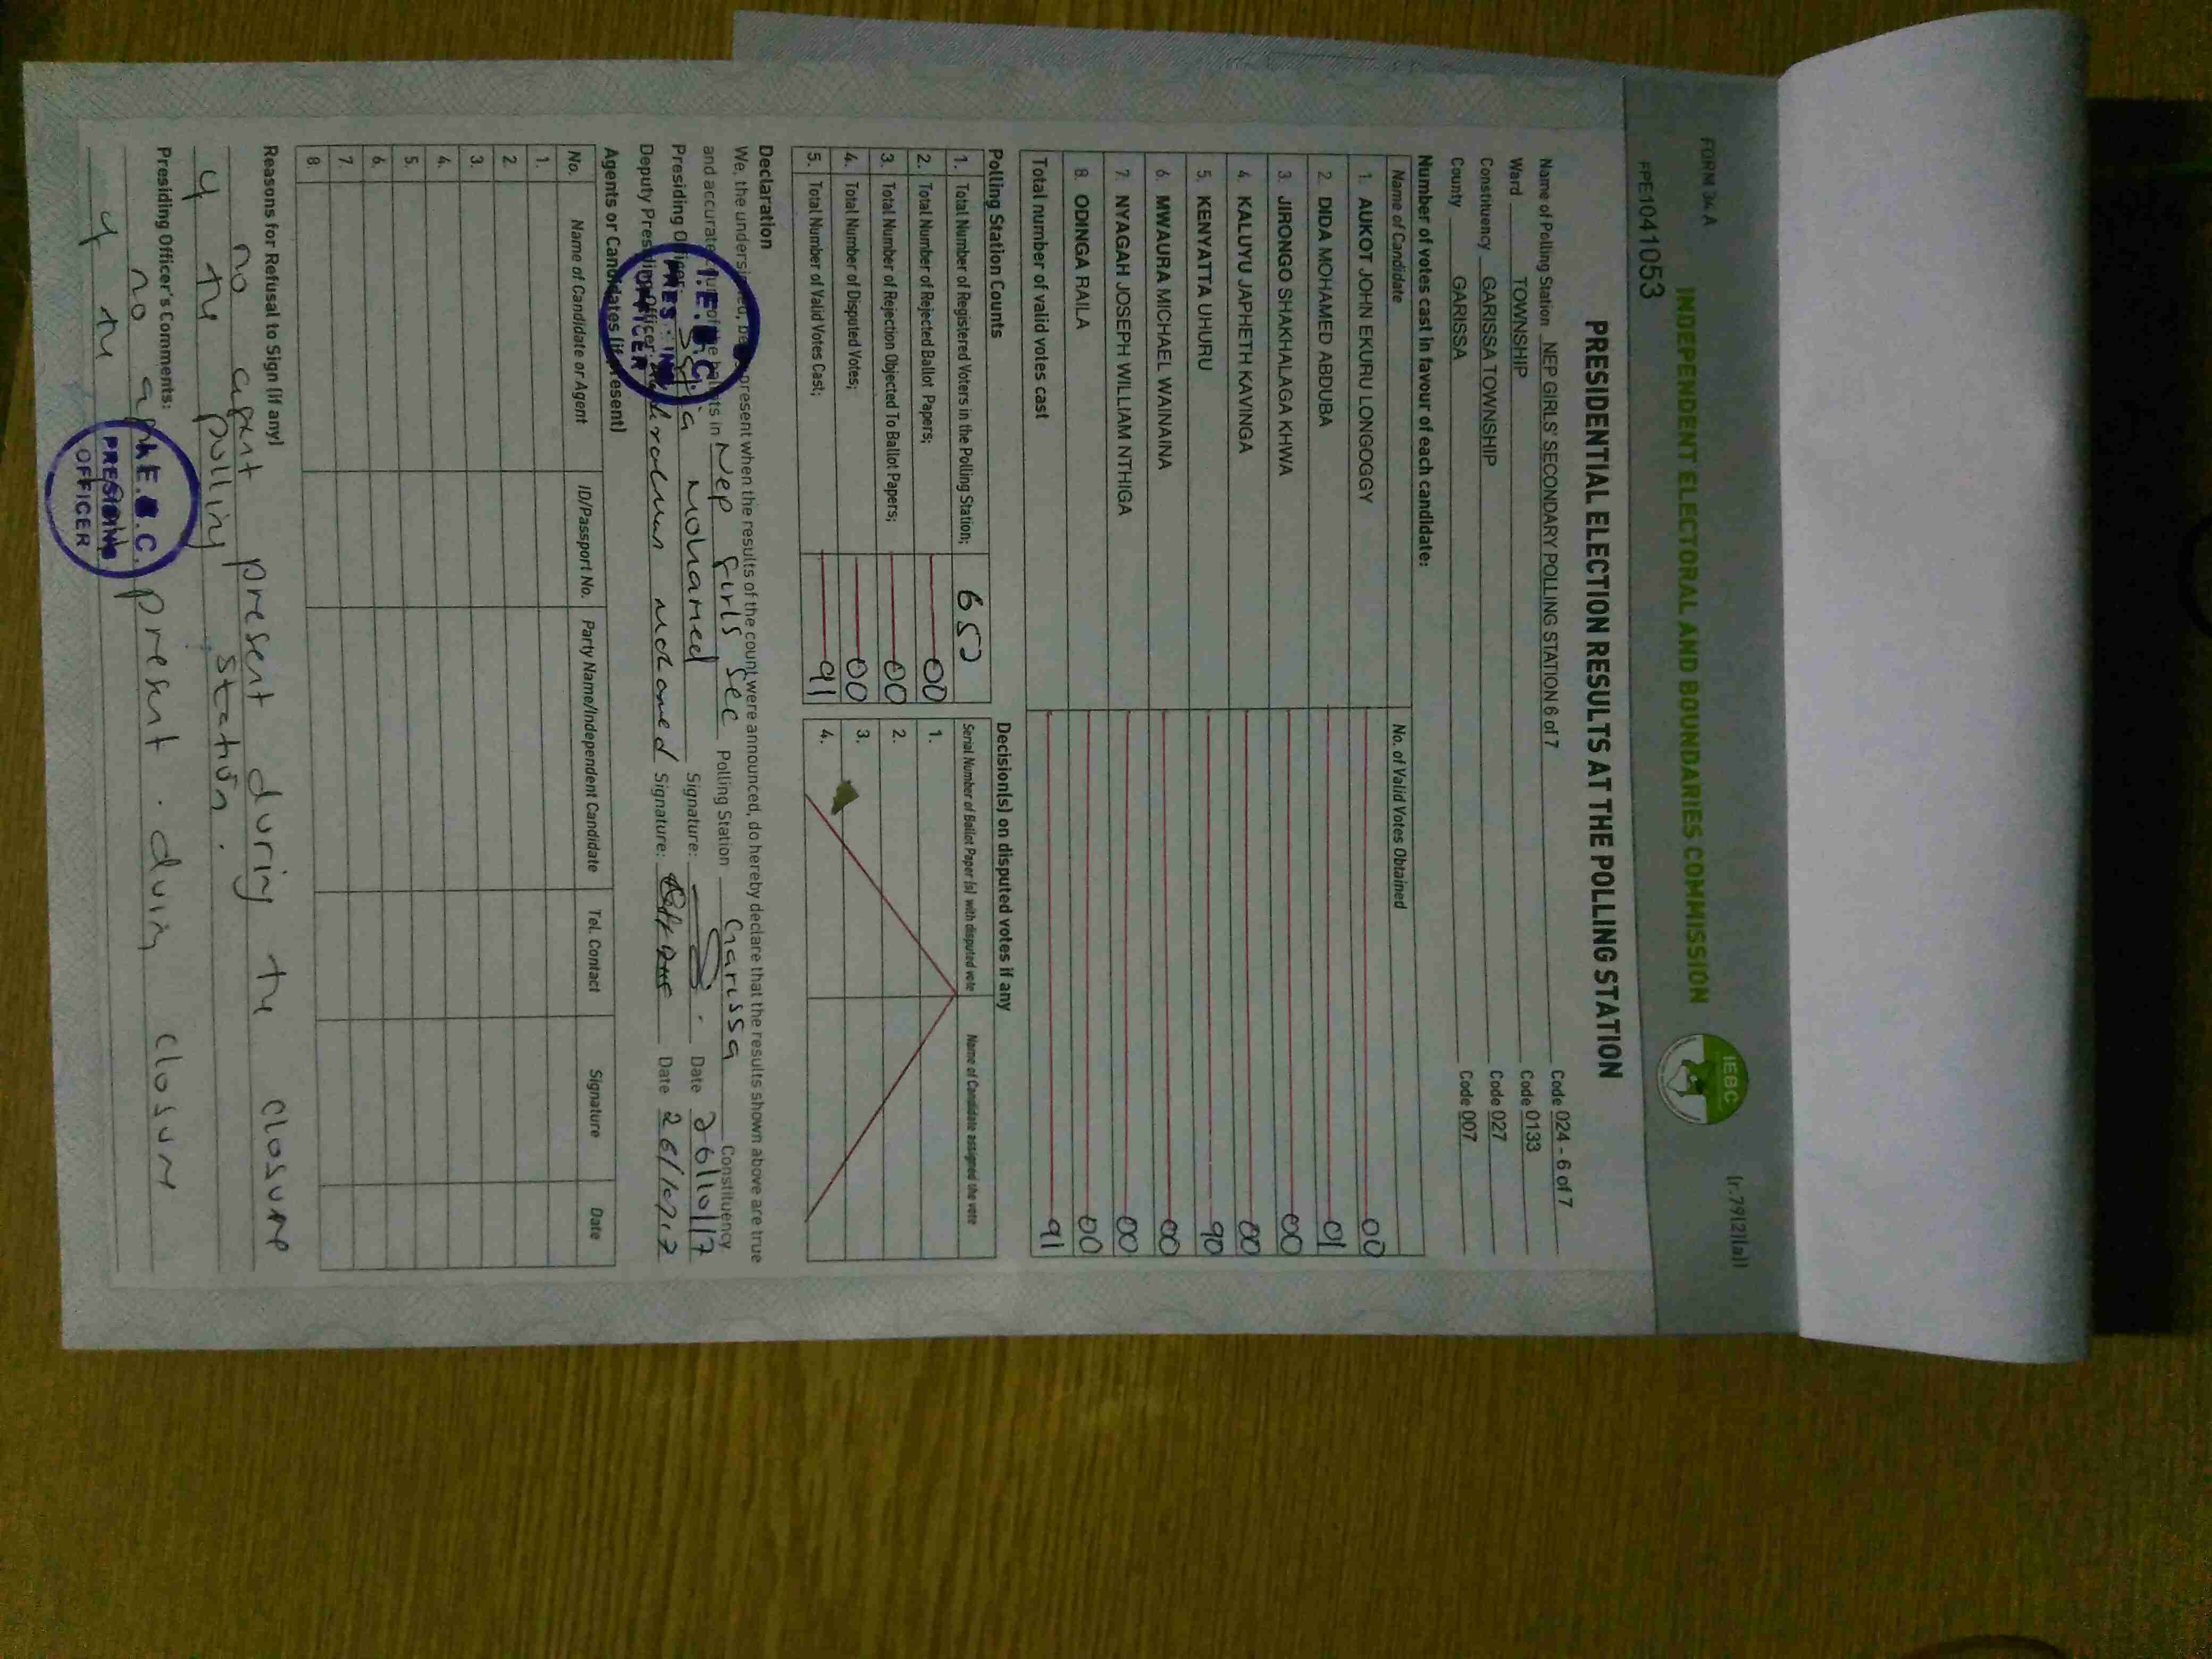 FORM 34 A
(r.79(2)(a))
INDEPENDENT ELECTORAL AND BOUNDARIES COMMISSION
IEBC
PPE1041053
PRESIDENTIAL ELECTION RESULTS AT THE POLLING STATION
Name of Polling Station NEP GIRLS' SECONDARY POLLING STATION 6 of 7 Code 024 - 6 of 7
Ward TOWNSHIP Code 0133
Constituency GARISSA TOWNSHIP Code 027
County GARISSA Code 007
Number of votes cast in favour of each candidate:
Name of Candidate No. of Valid Votes Obtained
1. AUKOT JOHN EKURU LONGOGGY 00
2. DIDA MOHAMED ABDUBA 01
3. JIRONGO SHAKHALAGA KHWA 00
4. KALUYU JAPHETH KAVINGA 00
5. KENYATTA UHURU 90
6. MWAURA MICHAEL WAINAINA 00
7. NYAGAH JOSEPH WILLIAM NTHIGA 00
8. ODINGA RAILA 00
Total number of valid votes cast 91
Polling Station Counts
1. Total Number of Registered Voters in the Polling Station;
2. Total Number of Rejected Ballot Papers; 00
3. Total Number of Rejection Objected To Ballot Papers; 00
4. Total Number of Disputed Votes; 00
5. Total Number of Valid Votes Cast; 91
Decision(s) on disputed votes if any
Serial Number of Ballot Paper (s) with disputed vote Name of Candidate assigned the vote
1.
2.
3.
4.
Declaration
We, the undersigned, being present when the results of the count were announced, do hereby declare that the results shown above are true
and accurate count of the ballots in Nep Girls Sec Polling Station Garissa Constituency
Presiding Officer: Mohamed Signature: Date 26/10/17
Deputy Presiding Officer: Signature: Date 26/10/17
I.E.B.C.
PRESIDING
OFFICER
Agents or Candidates (if present)
No. Name of Candidate or Agent ID/Passport No. Party Name/Independent Candidate Tel. Contact Signature Date
1.
2.
3.
4.
5.
6.
7.
8.
Reasons for Refusal to Sign (if any)
no agent present during the closure
of the polling station.
Presiding Officer's Comments:
no present during closure
of the
I.E.B.C.
PRESIDING
OFFICER